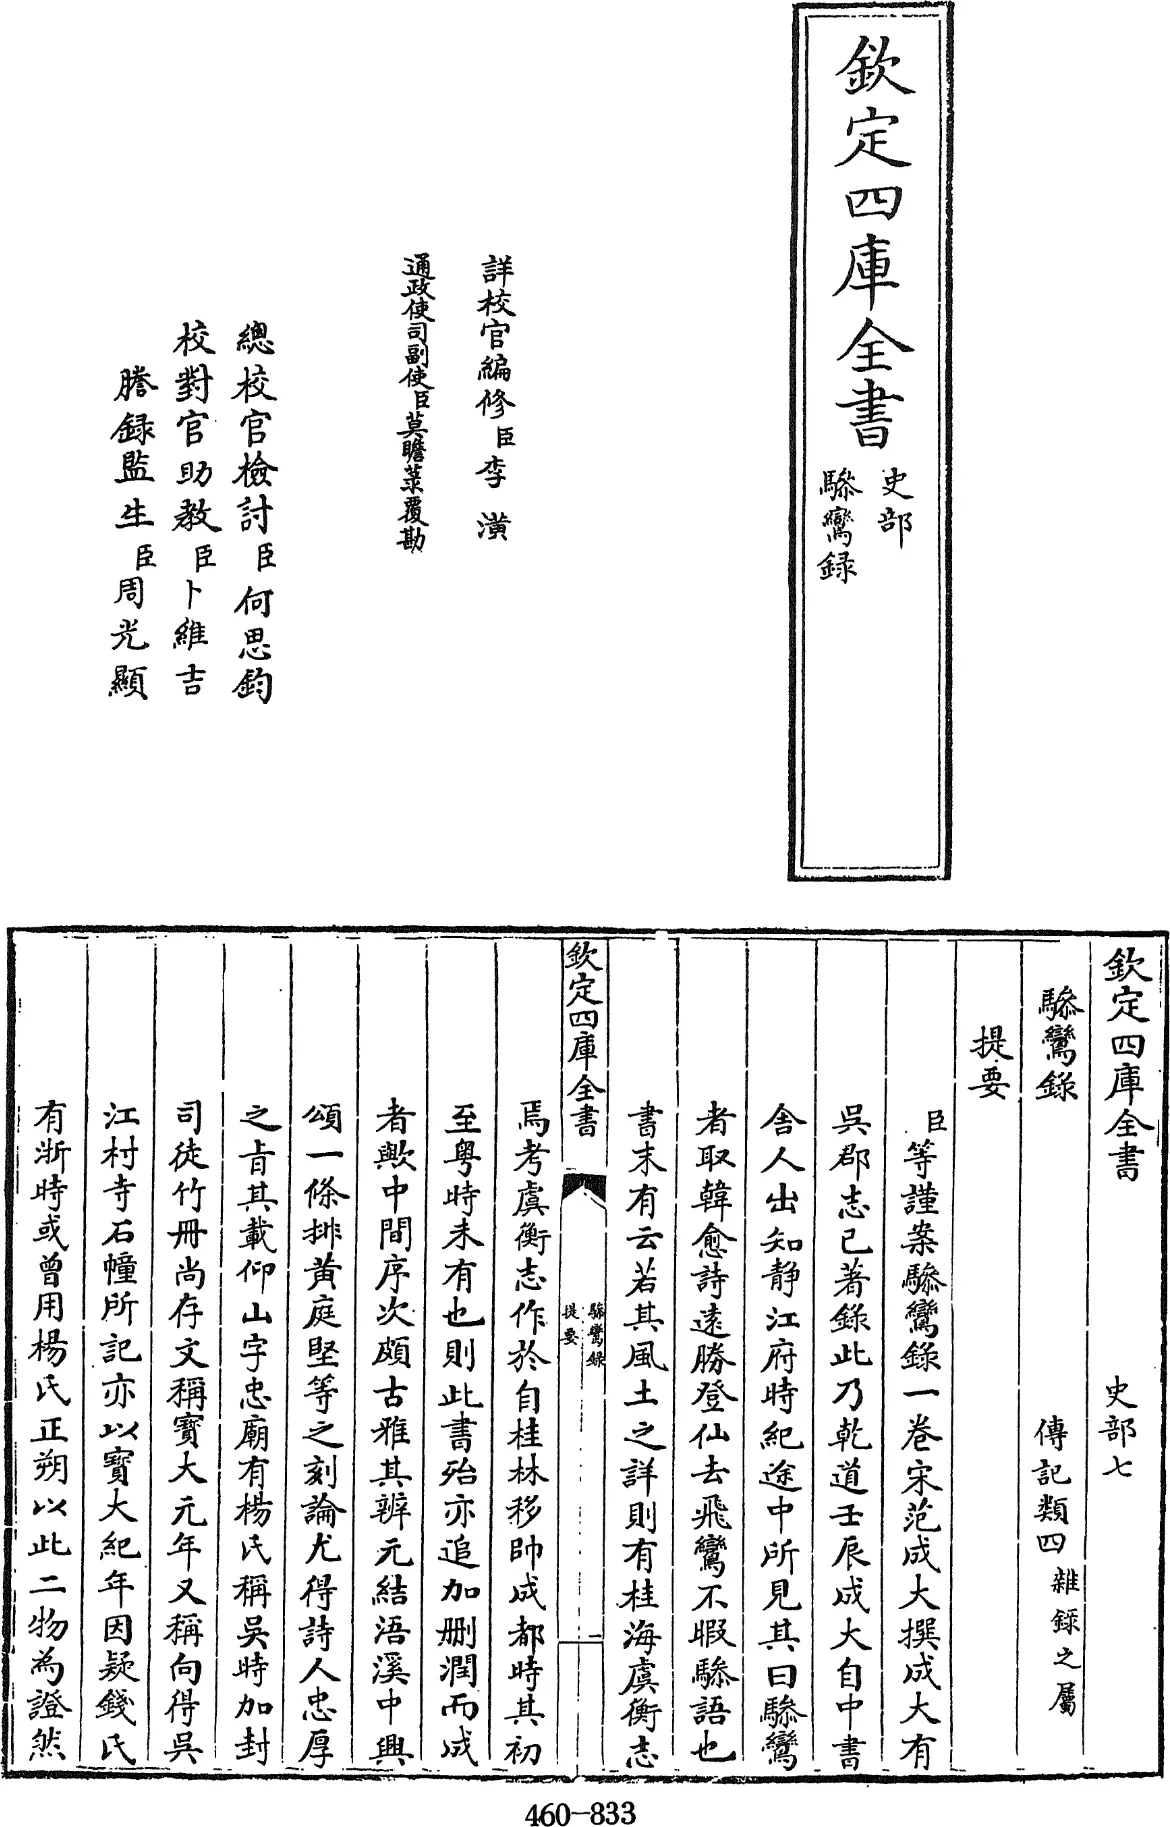 欽定四庫全書
史部
驂鸞録
詳校官編修臣李潢
通政使司副使臣莫瞻菉覆勘
總校官檢討臣何思鈞
校對官助教臣卜維吉
謄録監生臣周光顯
欽定四庫全書 史部七
驂鸞錄 傳記類四雜録之屬
提要
臣等謹案驂鸞錄一卷宋范成大撰成大有
吳郡志已著錄此乃乾道壬辰成大自中書
舍人出知静江府時紀途中所見其曰驂鸞
者取韓愈詩逺勝登仙去飛鸞不暇驂語也
書末有云若其風土之詳則有桂海虞衡志
欽定四庫全書
驂鸞錄
提要
一
焉考虞衡志作於自桂林移帥成都時其初
至粤時未有也則此書殆亦追加刪潤而成
者歟中間序次頗古雅其辨元結浯溪中興
頌一條排黄庭堅等之刻論尤得詩人忠厚
之㫖其載仰山孚忠廟有楊氏稱吳時加封
司徒竹冊尚存文稱寳大元年又稱向得吳
江村寺石幢所記亦以寳大紀年因疑錢氏
有浙時或曾用楊氏正朔以此二物為證然
460-833